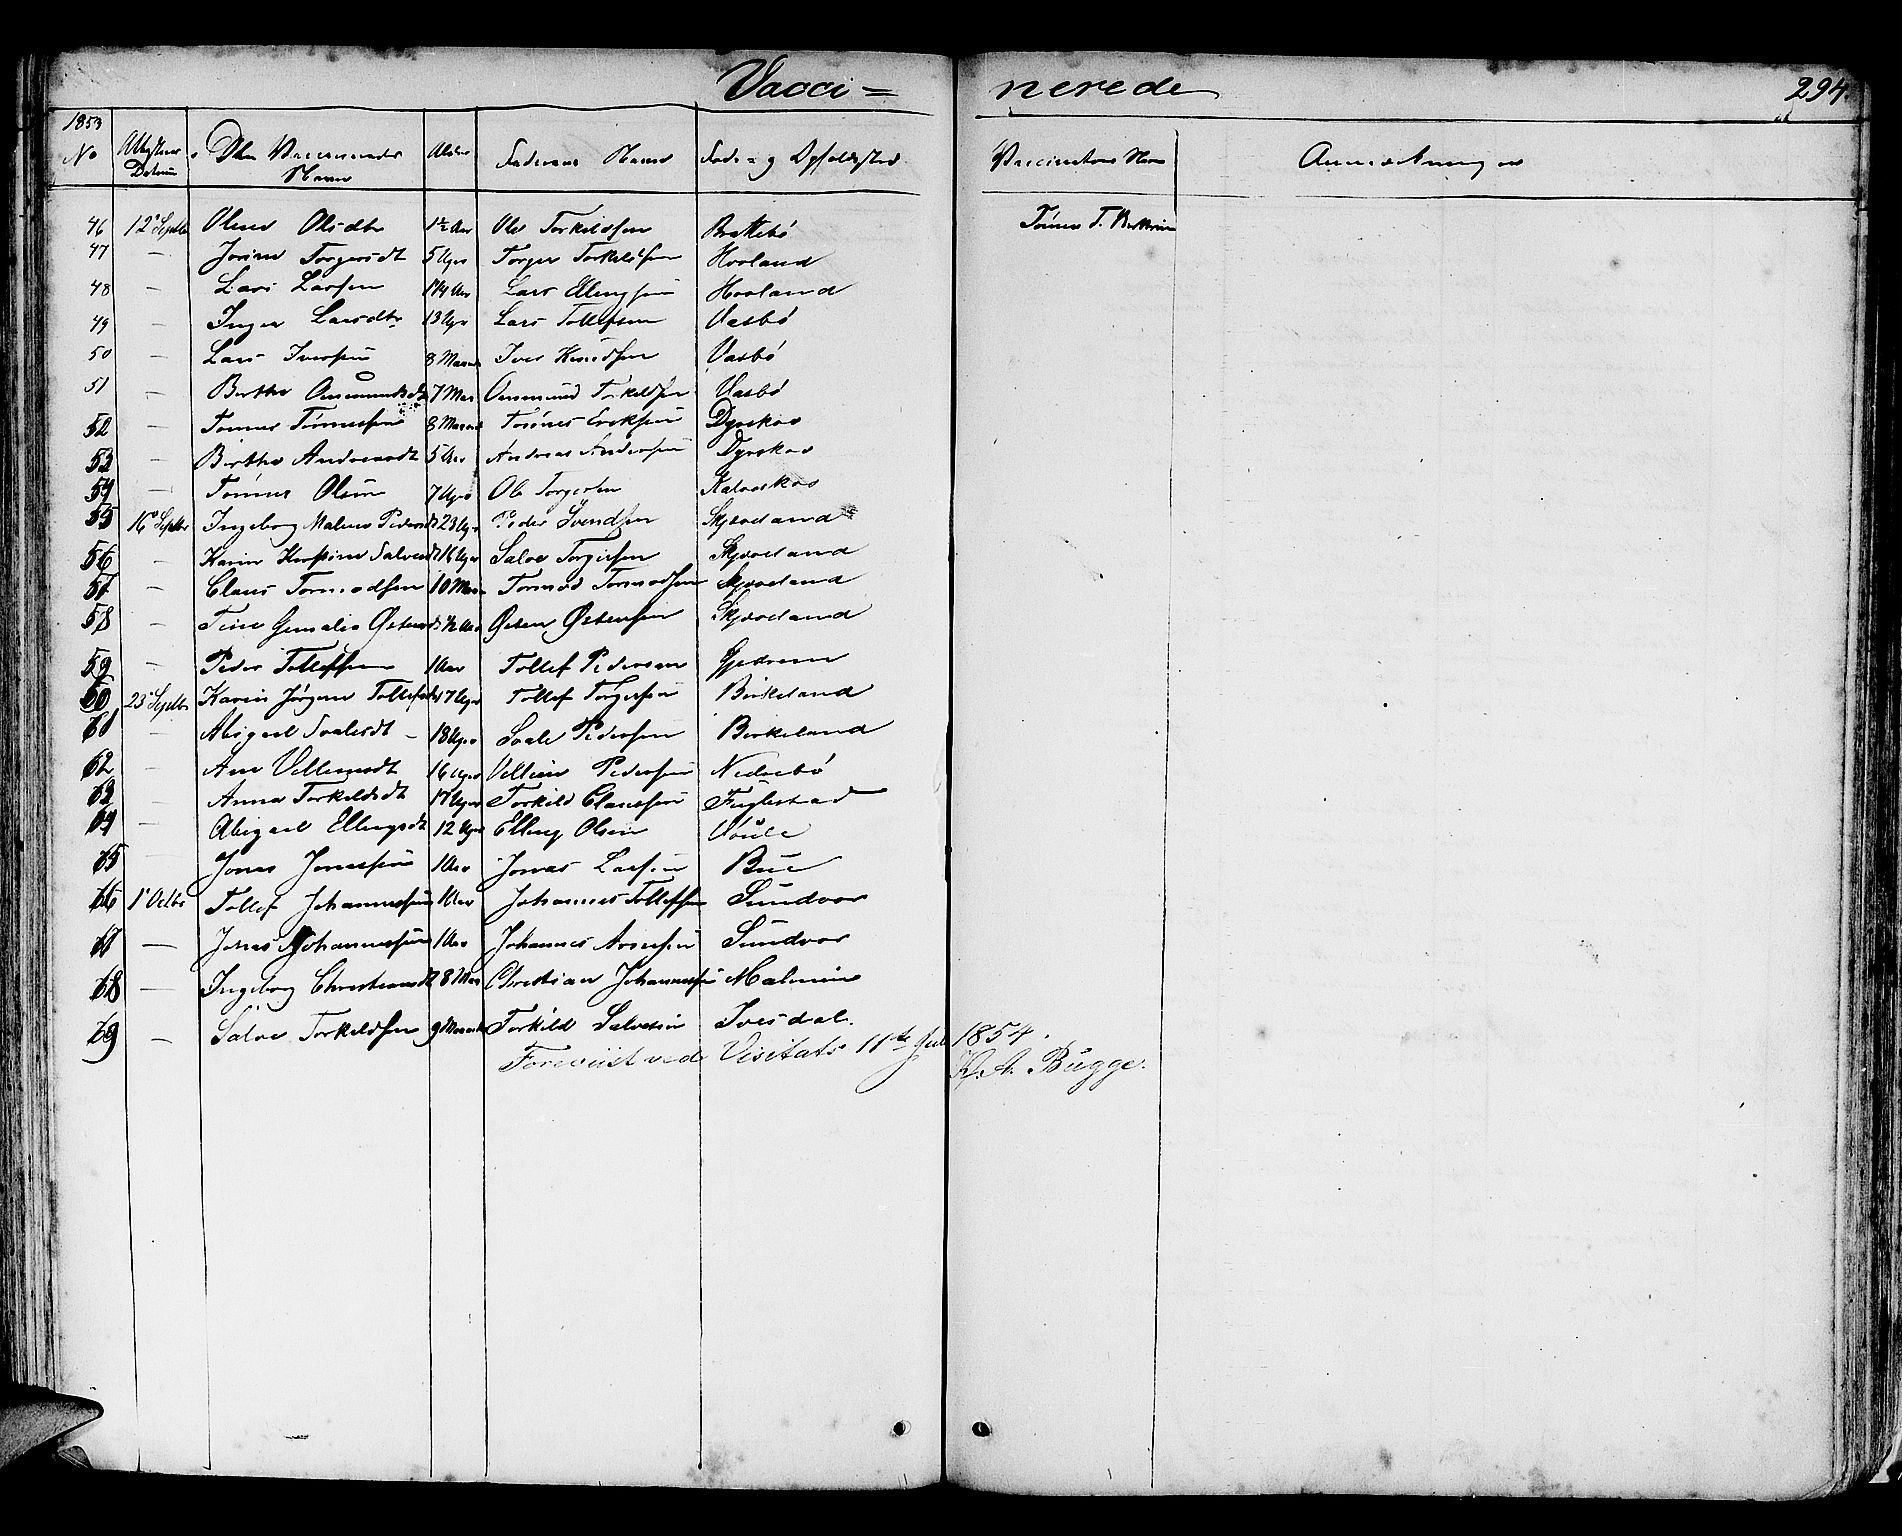 Vacci = nerede 294.
1853
No Attestens Datum Den Vaccineredes Navn Alder Faderens Navn Føde = og Opholdssted Vaccinators Navn Anmærkninger
46 12' Septbr Olene Olsdtr 1½ Aar Ole Torkildsen Brattebø Tönnes T.
47 — Jorine Torgersdt 5 Uger Torger Torkildsen Hovland
48 — Lars Larsen 1¼ Aar Lars Ellingsen Hovland
49 — Inger Larsdtr 13 Uger Lars Tollefsen Vasbø
50 — Lars Iversen 8 Maaned Iver Knudsen Vasbø
51 — Berthe Aanmundsdt 7 Maa Aanmund Torkildsen Vasbø
52 — Tönnes Tönnessen 8 Maaned Tönnes Eriksen Dyrskov
53 — Berthe Andreasdt 5 Aar Andreas Andersen Dyrskov
54 — Tönnes Olsen 7 Uger Ole Torgersen Kalveskov
55 16' Septbr Ingeborg Malene Pedersdt 23 Uger Peder Svendsen Skjæveland
56 — Karen Kirstine Salvesdt 16 Uger Salve Torgersen Skjæveland
57 — Claus Tormodsen 10 Maan Tormod Tormodsen Skjæveland
58 — Tine Østensdt ½ Aar Østen Østensen Skjæveland
59 — Peder Tollefsen 1 Aar Tollef Pedersen Gjedrem
60 23' Septbr Karen Jörgene Tollefsdt 17 Uger Tollef Torgersen Birkeland
61 — Abigael Svalesdt — 18 Uger Svale Pedersen Birkeland
62 — Ane Villumsdt 16 Uger Villum Pedersen Nedrebø
63 — Anna Torkildsdt 17 Uger Torkild Claussen Fuglestad
64 — Abigael Ellingsdt 12 Uger Elling Olsen
65 Jonas Jonassen 1 Aar Jonas Larsen Bue
66 1' Octbr Tollef Johannessen 1 Aar Johannes Tollefsen Sundvor
67 — Jonas Johannessen 1 Aar Johannes Sundvor
68 — Ingeborg Christiansdt 8 Maa Christian Johannessen Malmin
69 — Salve Torkildsen 9 Maaned Torkild Salvesen Ivesdal.
Foreviist ved Visitats 11te Juli 1854.
A. Bugge.